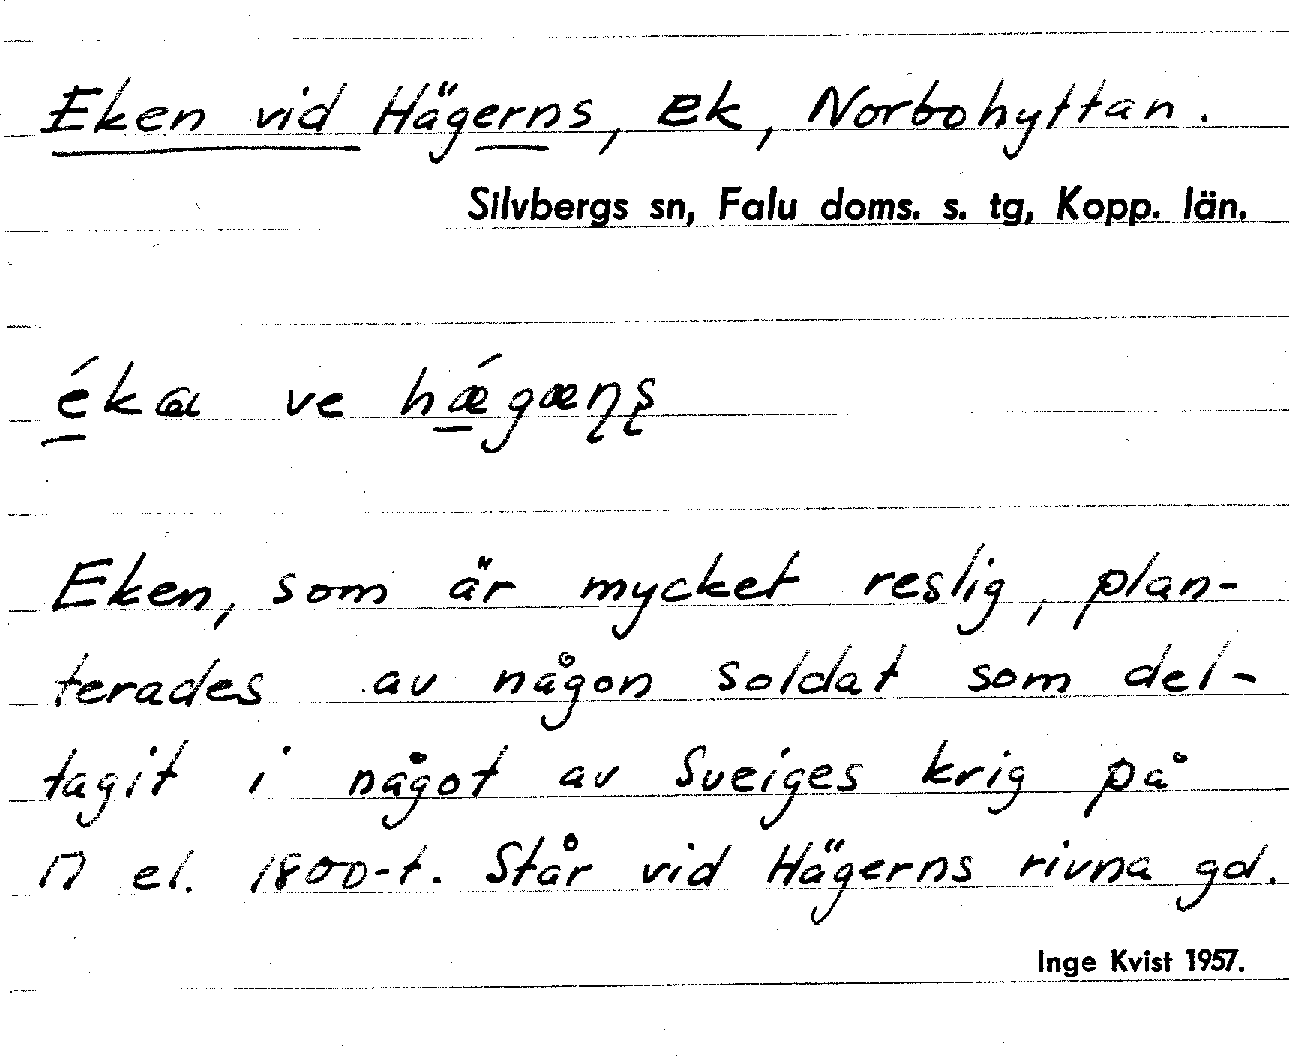 Eken vid Hägerns, ek, Norbohyttan.
Silvbergs sn, Falu doms. s. tg, Kopp. län.
éka ve hǽgæɳʂ
Eken, som är mycket reslig, plan-
terades av någon soldat som del-
tagit i något av Sveiges krig på
17 el. 1800-t. Står vid Hägerns rivna gd.
Inge Kvist 1957.